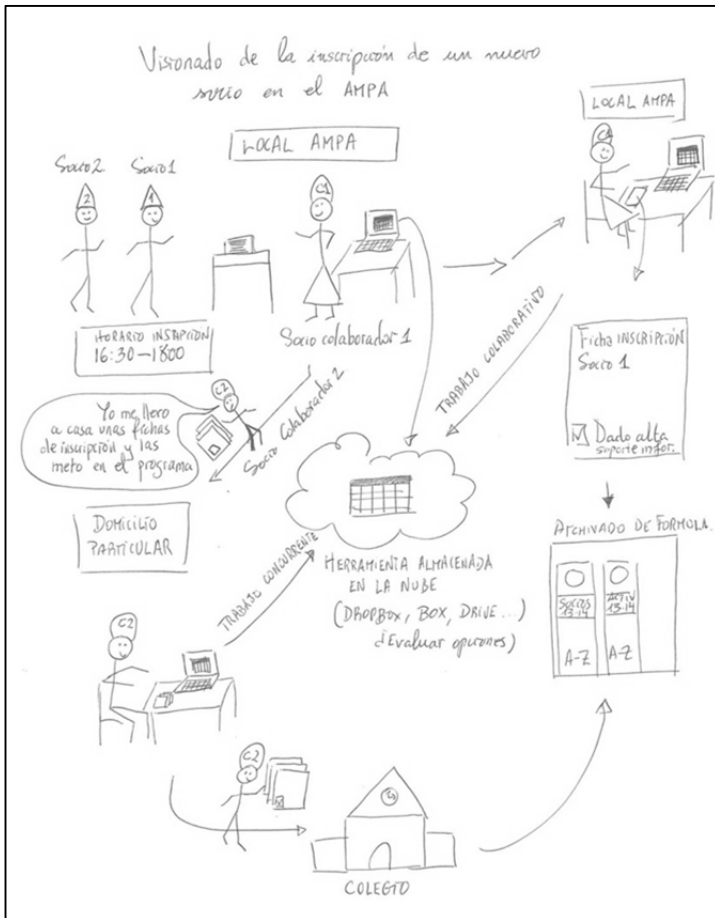 Visionado de la inscripción de un nuevo
socio en el AMPA
LOCAL AMPA
LOCAL AMPA
Socio 2
Socio 1
2
1
C1
C1
HORARIO INSCIPCIÓN
16:30-1800
Socio colaborador 1
TRABAJO COLABORATIVO
Ficha INSCRIPCIÓN
Socio 1
Dado alta
soporte infor.
C2
Yo me llevo
a casa unas fichas
de inscripción y las
meto en el programa
Socio Colaborador 2
DOMICILIO
PARTICULAR
TRABAJO CONCURRENTE
HERRAMIENTA ALMACENADA
EN LA NUBE
(DROPBOX, BOX, DRIVE...)
¿Evaluar opciones)
ARCHIVADO DE FORMULA.
SOCIOS
13-14
A-Z
ACTIV
13-14
A-Z
C2
C2
COLEGIO